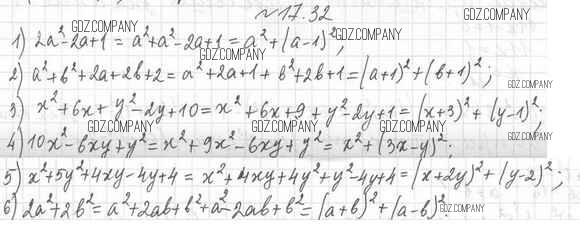 №17.32
GDZ.COMPANY
GDZ.COMPANY
1) 2a²-2a+1 = a²+a²-2a+1 = a²+(a-1)²;
GDZ.COMPANY
GDZ.COMPANY
2) a²+b²+2a+2b+2 = a²+2a+1+b²+2b+1 = (a+1)²+(b+1)²;
GDZ.COMPANY
3) x²+6x+y²-2y+10 = x²+6x+9+y²-2y+1 = (x+3)²+(y-1)²;
GDZ.COMPANY GDZ.COMPANY GDZ.COMPANY
4) 10x²-6xy+y² = x²+9x²-6xy+y² = x²+(3x-y)²;
GDZ.COMPANY
5) x²+5y²+4xy-4y+4 = x²+4xy+4y²+y²-4y+4 = (x+2y)²+(y-2)²;
6) 2a²+2b² = a²+2ab+b²+a²-2ab+b² = (a+b)²+(a-b)².
GDZ.COMPANY